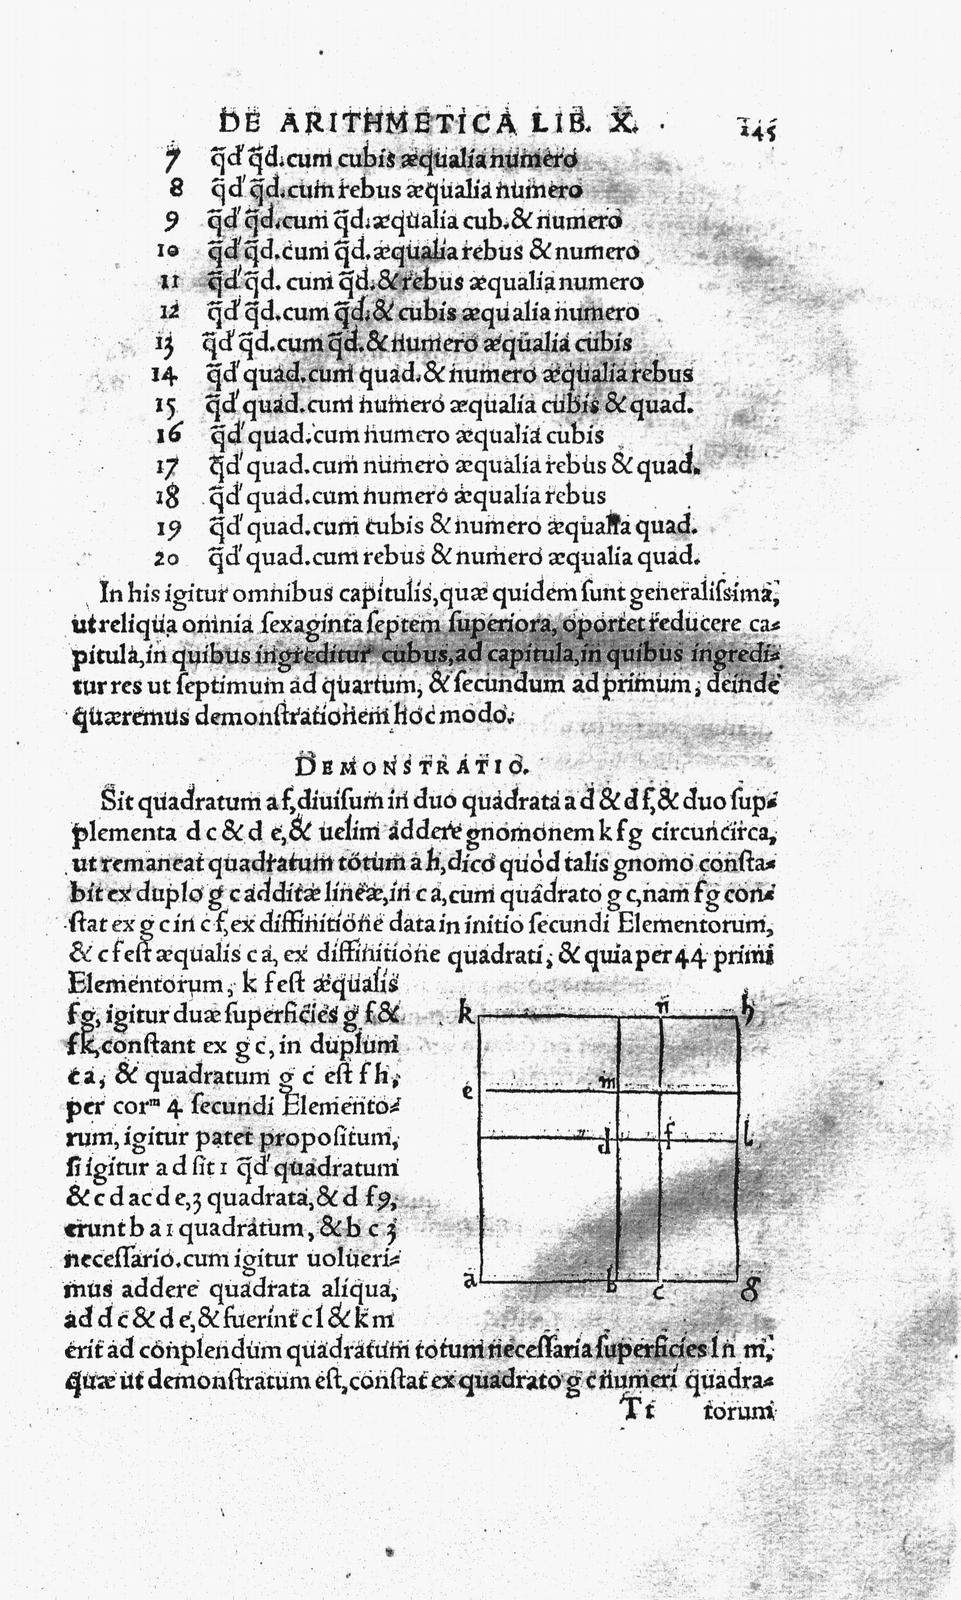 DE ARITHMETICA LIB. X. 145
7 q̃d' q̃d. cum cubis æqualia numero
8 q̃d' q̃d. cum rebus æqualia numero
9 q̃d' q̃d. cum q̃d. æqualia cub. & numero
10 q̃d' q̃d. cum q̃d. æqualia rebus & numero
11 q̃d' q̃d. cum q̃d. & rebus æqualia numero
12 q̃d' q̃d. cum q̃d. & cubis æqualia numero
13 q̃d' q̃d. cum q̃d. & numero æqualia cubis
14 q̃d' quad. cum quad. & numero æqualia rebus
15 q̃d' quad. cum numero æqualia cubis & quad.
16 q̃d' quad. cum numero æqualia cubis
17 q̃d' quad. cum numero æqualia rebus & quad.
18 q̃d' quad. cum numero æqualia rebus
19 q̃d' quad. cum cubis & numero æqualia quad.
20 q̃d' quad. cum rebus & numero æqualia quad.
In his igitur omnibus capitulis, quæ quidem sunt generalissima,
ut reliqua omnia sexaginta septem superiora, oportet reducere ca-
pitula, in quibus ingreditur cubus, ad capitula, in quibus ingredi-
tur res ut septimum ad quartum, & secundum ad primum, deinde
quæremus demonstrationem hoc modo.
DEMONSTRATIO.
Sit quadratum a f, diuisum in duo quadrata a d & d f, & duo sup-
plementa d c & d e, & uelim addere gnomonem k f g circuncirca,
ut remaneat quadratum totum a h, dico quòd talis gnomo consta-
bit ex duplo g c additæ lineæ, in c a, cum quadrato g c, nam f g con-
stat ex g c in c f, ex diffinitione data in initio secundi Elementorum,
& c f est æqualis c a, ex diffinitione quadrati, & quia per 44 primi
Elementorum, k f est æqualis
f g, igitur duæ superficies g f &
f k, constant ex g c, in duplum
c a, & quadratum g c est f h,
per corᵐ 4 secundi Elemento-
rum, igitur patet propositum,
si igitur a d sit 1 q̃d' quadratum
& c d ac d e, 3 quadrata, & d f 9,
erunt b a 1 quadratum, & b c 3
necessario. cum igitur uolueri-
mus addere quadrata aliqua,
ad d c & d e, & fuerint c l & k m
k n h
e m
d f l
a b c g
erit ad conplendum quadratum totum necessaria superficies l n m,
quæ ut demonstratum est, constat ex quadrato g c numeri quadra-
Tt torum